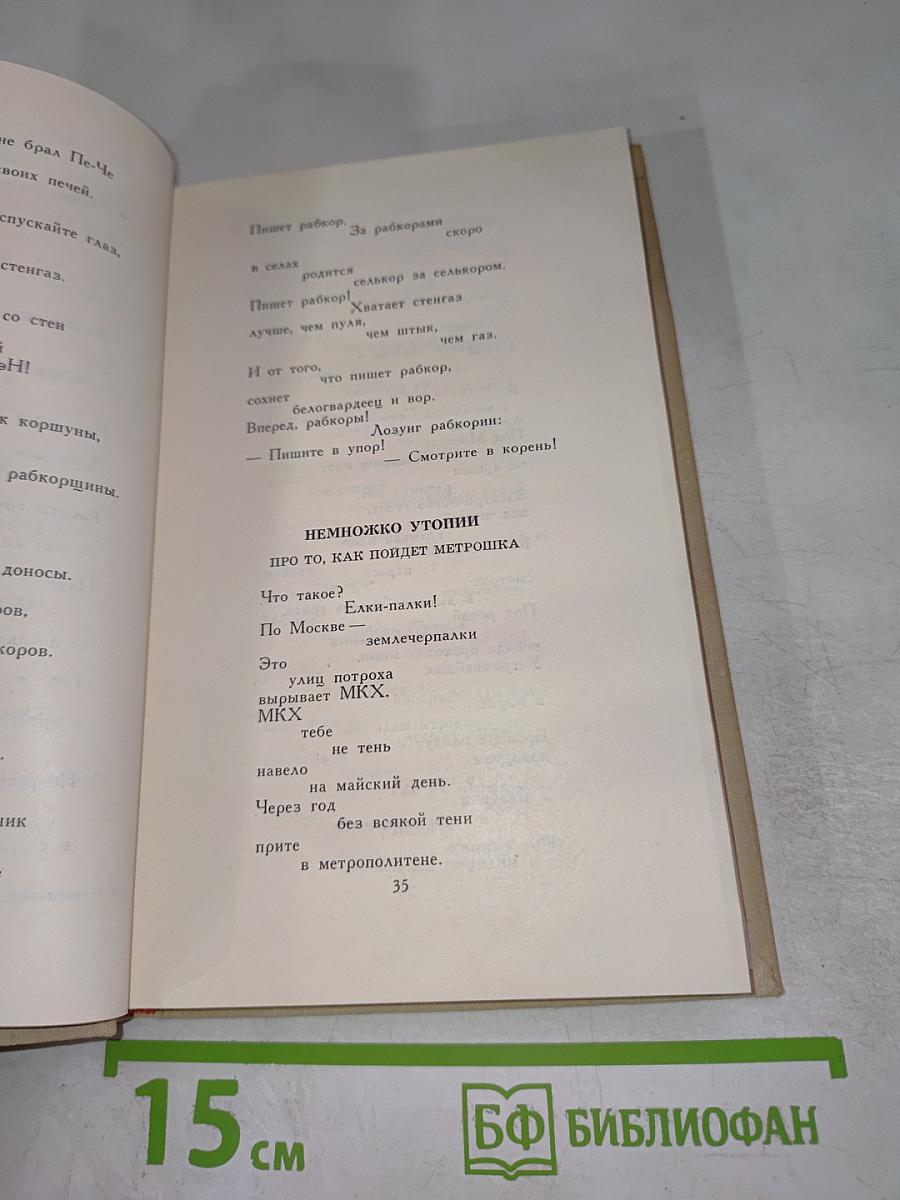 не брал Пе-Че
своих печей.
спускайте глаз,
стенгаз.
со стен
эН!
к коршуны,
рабкорщины.
доносы.
ров,
коров.
ник
Пишет рабкор.
За рабкорами
скоро
в селах
родится
селькор за селькором.
Пишет рабкор!
Хватает стенгаз
лучше, чем пуля,
чем штык,
чем газ.
И от того,
что пишет рабкор,
сохнет
белогвардеец и вор.
Вперед, рабкоры!
Лозунг рабкорин:
— Пишите в упор!
— Смотрите в корень!
НЕМНОЖКО УТОПИИ
ПРО ТО, КАК ПОЙДЕТ МЕТРОШКА
Что такое?
Елки-палки!
По Москве —
землечерпалки
Это
улиц потроха
вырывает МКХ.
МКХ
тебе
не тень
навело
на майский день.
Через год
без всякой тени
прите
в метрополитене.
35
15 см
БФ БИБЛИОФАН